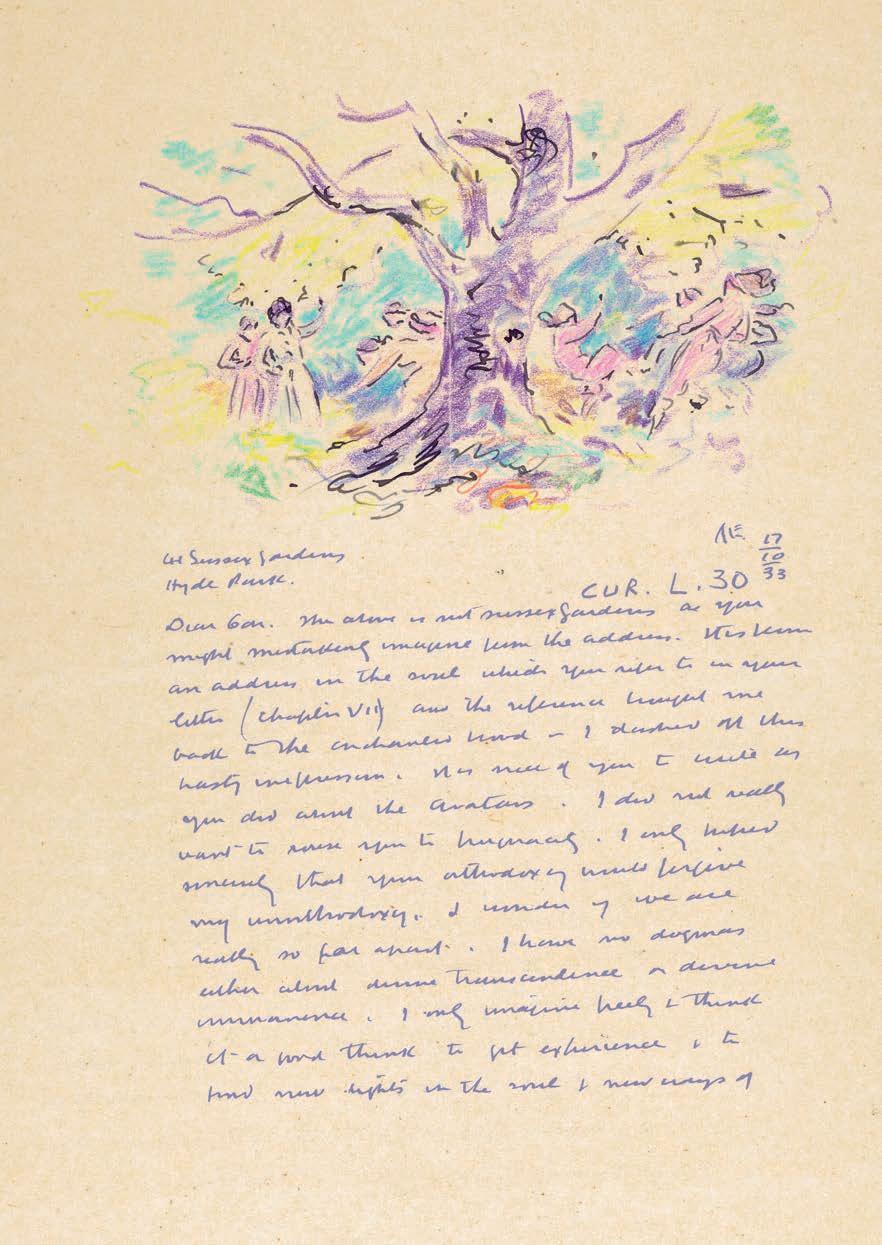 41 Sussex Gardens
Hyde Park.
Æ. 17/10/33
CUR. L. 30
Dear Gan. The above is not Sussex Gardens as you
might mistakenly imagine from the address. It is from
an address in the soul which you refer to in your
letter (Chapter VII) and the reference brought me
back to the enchanted wood & I dashed off this
hasty impression. It is nice of you to write as
you did about the Avatars. I did not really
want to rouse you to pugnacity. I only hoped
sincerely that your orthodoxy would forgive
my unorthodoxy. I wonder if we are
really so far apart. I have no dogmas
either about divine transcendence or divine
immanence. I only imagine freely & think
it a good think to get experience & to
find new lights in the soul & new ways of